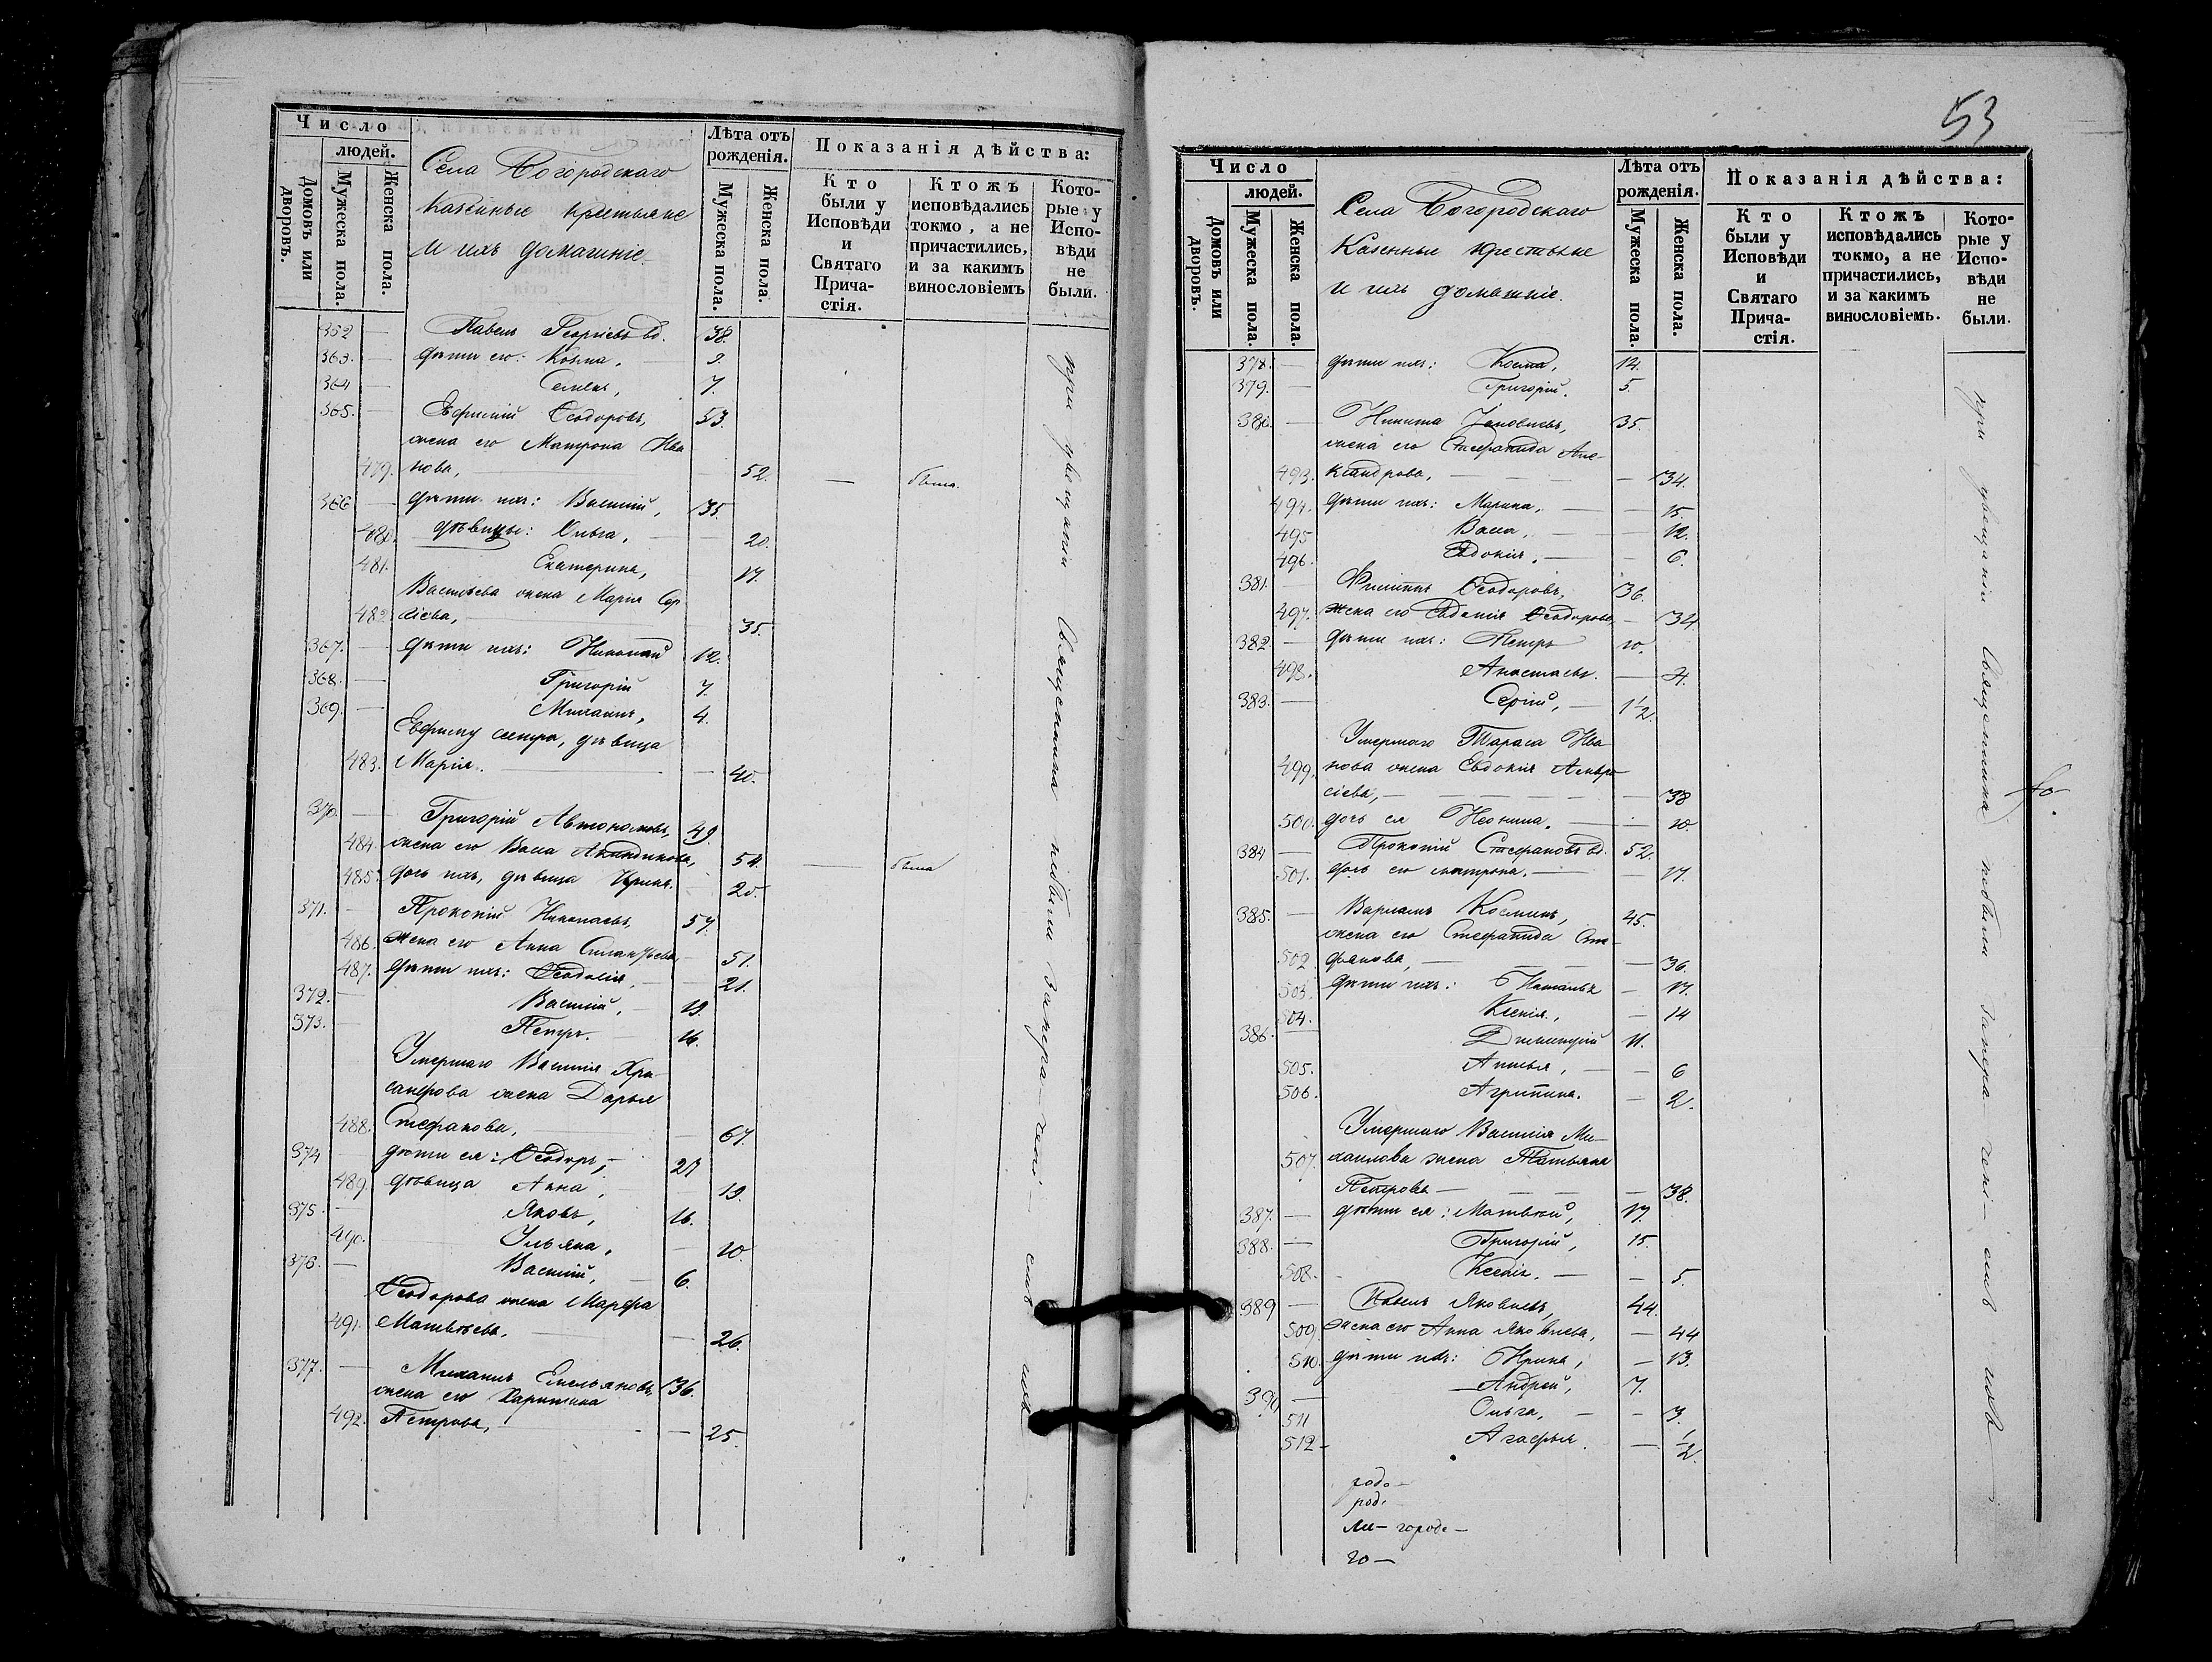 Число
людей.
Домовъ или дворовъ.
Мужеска пола.
Женска пола.
Села Богородскаго
Казенные крестьяне
и ихъ домашніе.
Лѣта отъ рожденія.
Мужеска пола.
Женска пола.
Показанія дѣйства:
Кто были у Исповѣди и Святаго Прича-стія.
Ктожъ исповѣдались токмо, а не причастились, и за какимъ винословіемъ
Кото-рые у Испо-вѣди не были.
352 — Павелъ Георгіевъ вд. 38.
363. — дѣти его: Козма, 9.
364 — Семенъ, 7.
365. — Ефимій Ѳеодоровъ, 53.
жена его Матрона Ива
479. нова, — 52. — была.
366 — дѣти ихъ: Василій, 35.
480. дѣвицы: Ольга, — 20.
481. Екатерина, 17.
Васильева жена Марія Сер
482. гіева, — 35.
367. — дѣти ихъ: Николай 12.
368. — Григорій 7.
369. — Михаилъ, 4.
Евфиму сестра, дѣвица
483. Марія. — 40.
370. — Григорій Автономовъ, 49.
484. жена его Васса Акиндинова, 54. — была
485. дочь ихъ, дѣвица Ирина. 20.
371. — Прокопій Николаевъ, 57.
486. жена его Анна Силантьева, — 51.
487. дѣти ихъ: Ѳеодосія, — 21.
372. — Василій, — 19.
373. — Петръ. — 16.
Умершаго Василія Хри
санфова жена Дарья
488. Стефанова, — 67.
374 — дѣти ея: Ѳеодоръ, — 27
489. дѣвица Анна, — 19.
375. — Яковъ, 16.
490. Ульяна, — 10.
376. — Василій, — 6.
Ѳеодорова жена Марѳа
491. Матвѣева. — 26.
377. — Михаилъ Емельяновъ, 36.
жена его Харитина
492. Петрова, — 25.
при увѣщаніи Священника небыли
53
Число
людей.
Домовъ или дворовъ.
Мужеска пола.
Женска пола.
Села Богородскаго
Казенные крестьяне
и ихъ домашніе.
Лѣта отъ рожденія.
Мужеска пола.
Женска пола.
Показанія дѣйства:
Кто были у Исповѣди и Святаго Прича-стія.
Ктожъ исповѣдались токмо, а не причастились, и за какимъ винословіемъ.
Кото-рые у Испо-вѣди не были.
378. — дѣти ихъ: Косма, 14.
379. — Григорій. 5.
380. — Никита Іаковлевъ, 35.
жена его Стефанида Але-
493. ксандрова, — 34.
494. дѣти ихъ: Марина, — 15.
495 Васса, — 12.
496. Евдокія, — 6.
381. — Филиппъ Ѳеодоровъ, 36.
497. жена его Евдокія Ѳеодорова, — 34.
382 — дѣти ихъ: Петръ 10.
498. Анастасья. — 4.
383. — Сергій, — 1 1/2.
Умершаго Тараса Ива
499. нова жена Евдокія Амвро
сіева, — 38
500. дочь ея Неонила. — 10.
384 — Прокопій Стефановъ вд. 52.
501. дочь его Матрона. — 17.
385. — Варламъ Косминъ, 45.
жена его Стефанида Сте-
502. фанова, — 36.
503. дѣти ихъ: Наталья — 17.
504. Ксенія, — 14
386. — Димитрій 11.
505. Анисья, — 6
506. Агрипина. — 2.
Умершаго Василія Ми-
507. хаилова жена Татьяна
Петрова — 38.
387. — дѣти ея: Матвѣй, 17.
388. — Григорій, 15.
508. Ксенія. — 5.
389 — Павелъ Яковлевъ, 44.
509. жена его Анна Яковлева, — 44
510. дѣти ихъ: Ирина, — 13.
390 — Андрей, 7.
511 Ольга, — 3.
512 — Агафья. — 1/2.
родо-
род.
ли- города-
го-
при увѣщаніи Священника небыли